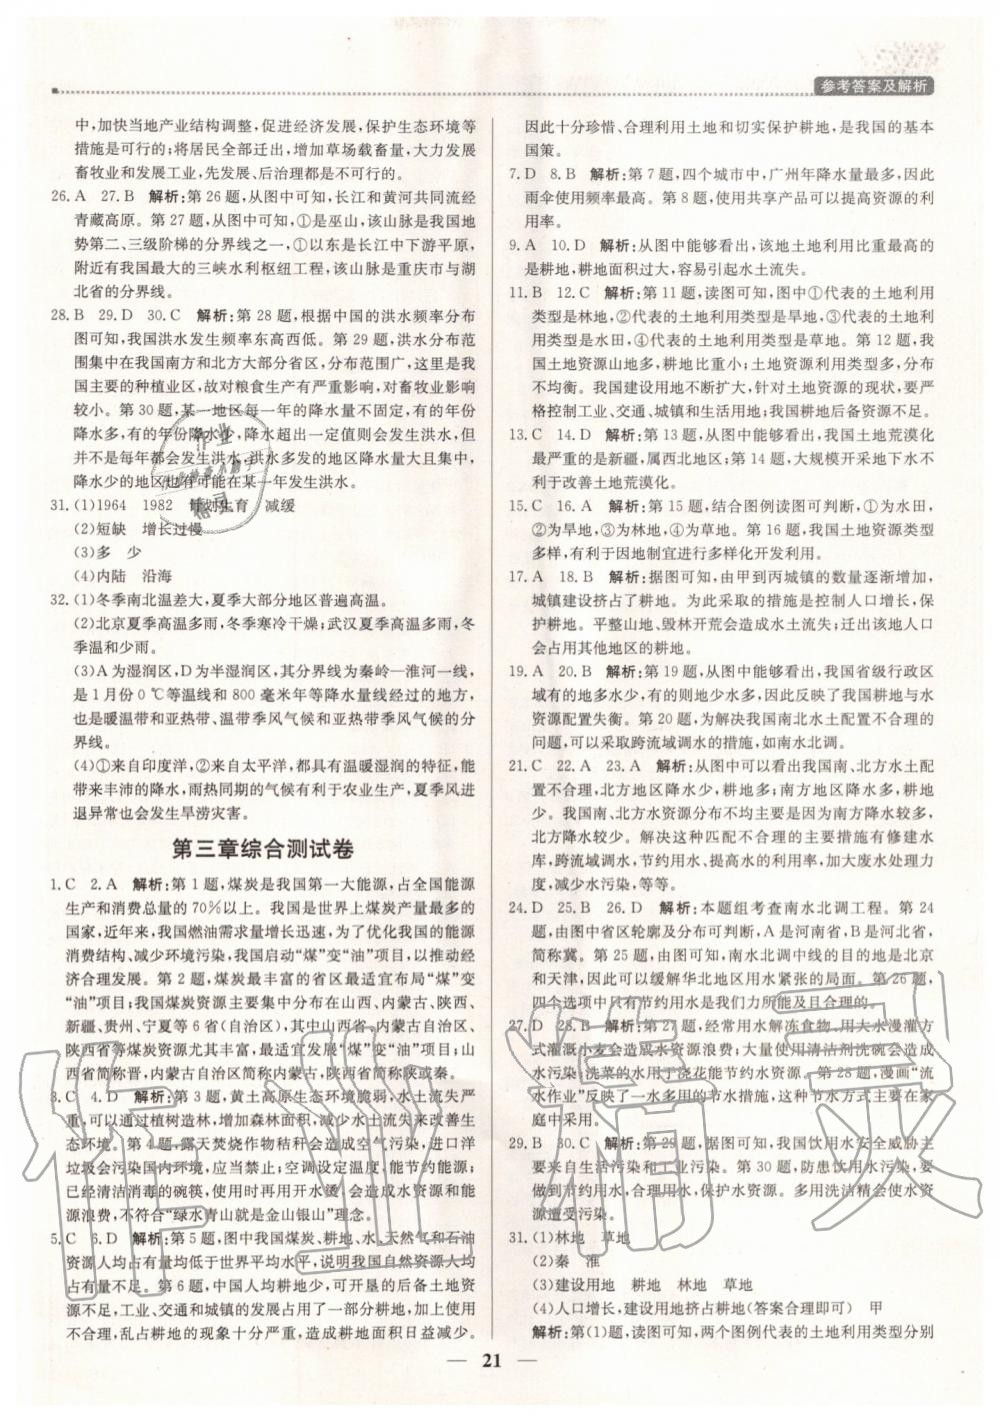 参考答案及解析
中,加快当地产业结构调整,促进经济发展,保护生态环境等
措施是可行的;将居民全部迁出,增加草场载畜量,大力发展
畜牧业和发展工业,先发展、后治理都是不可行的。
26. A 27. B 解析:第26题,从图中可知,长江和黄河共同流经
青藏高原。第27题,从图中可知,①是巫山,该山脉是我国地
势第二、三级阶梯的分界线之一,①以东是长江中下游平原,
附近有我国最大的三峡水利枢纽工程,该山脉是重庆市与湖
北省的分界线。
28. B 29. D 30. C 解析:第28题,根据中国的洪水频率分布
图可知,我国洪水发生频率东高西低。第29题,洪水分布范
围集中在我国南方和北方大部分省区,分布范围广,这里是我
国主要的种植业区,故对粮食生产有严重影响,对畜牧业影响
较小。第30题,某一地区每一年的降水量不固定,有的年份
降水多,有的年份降水少,降水超出一定值则会发生洪水,但
并不是每年都会发生洪水,洪水多发的地区也有降水少的年份,
降水少的地区也有可能在某一年发生洪水。
31. (1)1964 1982 计划生育 减缓
(2)短缺 增长过慢
(3)多 少
(4)内陆 沿海
32. (1)冬季南北温差大,夏季大部分地区普遍高温。
(2)北京夏季高温多雨,冬季寒冷干燥;武汉夏季高温多雨,冬
季温和少雨。
(3)A为湿润区,D为半湿润区,其分界线为秦岭—淮河一线,
是1月份0 ℃等温线和800毫米年等降水量线经过的地方,
也是暖温带和亚热带、温带季风气候和亚热带季风气候的分
界线。
(4)①来自印度洋,②来自太平洋,都具有温暖湿润的特征,能
带来丰沛的降水,雨热同期的气候有利于农业生产,夏季风进
退异常也会发生旱涝灾害。
第三章综合测试卷
1. C 2. A 解析:第1题,煤炭是我国第一大能源,占全国能源
生产和消费总量的70%以上。我国是世界上煤炭产量最多的
国家,近年来,我国燃油需求量增长迅速,为了优化我国的能源
消费结构、减少环境污染,启动“煤”变“油”项目,以推动经
济合理发展。第2题,煤炭最丰富的省区最适宜布局“煤”变
“油”项目;我国煤炭资源主要集中分布在山西、内蒙古、陕西、
新疆、贵州、宁夏等6省(自治区),其中山西省、内蒙古自治区、
陕西省等煤炭资源尤其丰富,最适宜发展“煤”变“油”项目;山
西省简称晋,内蒙古自治区简称内蒙古,陕西省简称陕或秦。
3. C 4. D 解析:第3题,黄土高原生态环境脆弱,水土流失严
重,可以通过植树造林,增加森林面积,减少水土流失来改善生
态环境。第4题,露天焚烧作物秸秆会造成空气污染,进口洋
垃圾会污染国内环境,应当禁止;空调设定温度,能节约能源;
已经清洁消毒的碗筷,使用时再用开水烫,会造成水资源和能
源浪费,不符合“绿水青山就是金山银山”理念。
5. C 6. D 解析:第5题,图中我国煤炭、耕地、水、天然气和石油
资源人均占有量均低于世界平均水平,说明我国自然资源人均
占有量不足。第6题,中国人均耕地少,可开垦的后备土地资
源不足,工业、交通和城镇的发展占用了一部分耕地,加上使用
不合理,乱占耕地的现象十分严重,造成耕地面积日益减少。
因此十分珍惜、合理利用土地和切实保护耕地,是我国的基本
国策。
7. D 8. B 解析:第7题,四个城市中,广州年降水量最多,因此
雨伞使用频率最高。第8题,使用共享产品可以提高资源的利
用率。
9. A 10. D 解析:从图中能够看出,该地土地利用比重最高的
是耕地,耕地面积过大,容易引起水土流失。
11. B 12. C 解析:第11题,读图可知,图中①代表的土地利用
类型是林地,②代表的土地利用类型是旱地,③代表的土地利
用类型是水田,④代表的土地利用类型是草地。第12题,我
国土地资源山地多,耕地比重小;土地资源利用类型多,分布
不均衡。我国建设用地不断扩大,针对土地资源的现状,要严
格控制工业、交通、城镇和生活用地;我国耕地后备资源不足。
13. C 14. D 解析:第13题,从图中能够看出,我国土地荒漠化
最严重的是新疆,属西北地区;第14题,大规模开采地下水不
利于改善土地荒漠化。
15. C 16. A 解析:第15题,结合图例读图可判断,①为水田,
②为旱地,③为林地,④为草地。第16题,我国土地资源类型
多样,有利于因地制宜进行多样化开发利用。
17. A 18. B 解析:据图可知,由甲到丙城镇的数量逐渐增加,
城镇建设挤占了耕地。为此采取的措施是控制人口增长,保
护耕地。平整山地、毁林开荒会造成水土流失;迁出该地人口
会占用其他地区的耕地。
19. A 20. B 解析:第19题,从图中能够看出,我国省级行政区
域有的地多水少,有的则地少水多,因此反映了我国耕地与水
资源配置失衡。第20题,为解决我国南北水土配置不合理的
问题,可以采取跨流域调水的措施,如南水北调。
21. C 22. A 23. A 解析:从图中可以看出我国南、北方水土配
置不合理,北方地区降水少,耕地多;南方地区降水多,耕地
少。我国南、北方水资源分布不均主要是因为南方降水较多,
北方降水较少。解决这种匹配不合理的主要措施有修建水
库,跨流域调水,节约用水,提高水的利用率,加大废水处理力
度,减少水污染,等等。
24. D 25. B 26. D 解析:本题组考查南水北调工程。第24
题,由图中省区轮廓及分布可判断,A是河南省,B是河北省,
简称冀。第25题,由图可知,南水北调中线的目的地是北京
和天津,因此可以缓解华北地区用水紧张的局面。第26题,
四个选项中只有节约用水是我们力所能及且合理的。
27. D 28. B 解析:第27题,经常用水解冻食物、用大水漫灌方
式灌溉小麦会造成水资源浪费;大量使用清洁剂洗碗会造成
水污染;洗菜的水用于浇花能节约水资源。第28题,漫画“流
水作业”反映了一水多用的节水措施,这种节水方式主要在家
庭中采用。
29. B 30. C 解析:第29题,据图可知,我国饮用水安全威胁主
要来自生活污染和工业污染。第30题,防患饮用水危机,要
做到节约用水,合理用水,保护水资源。多用洗洁精会使水资
源遭受污染。
31. (1)林地 草地
(2)秦 淮
(3)建设用地 耕地 林地 草地
(4)人口增长,建设用地挤占耕地(答案合理即可) 甲
解析:第(1)题,读图可知,两个图例代表的土地利用类型分别
— 21 —
作业精灵